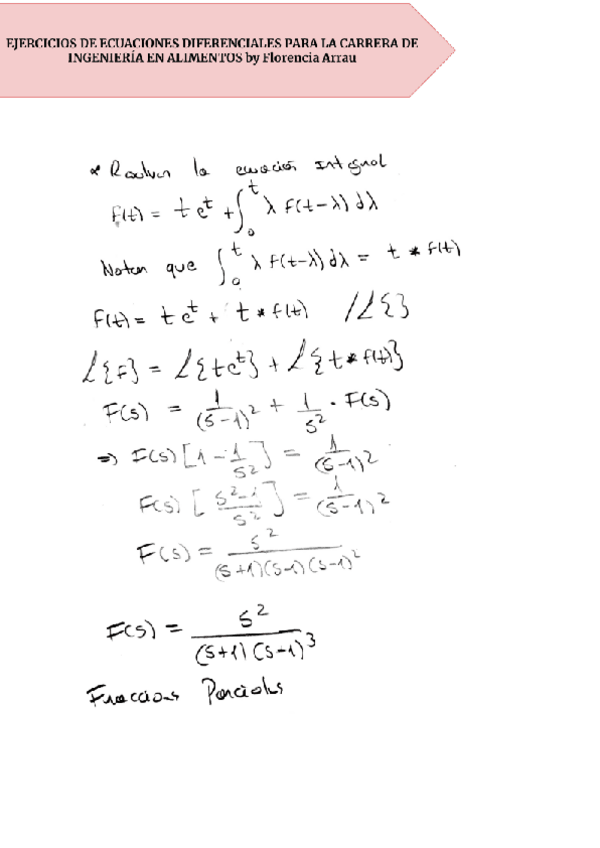 EJERCICIOS DE ECUACIONES DIFERENCIALES PARA LA CARRERA DE
INGENIERÍA EN ALIMENTOS by Florencia Arrau
* Resolver la ecuación Integral
f(t) = t e^t + ∫_0^t λ f(t-λ) dλ
Notar que ∫_0^t λ f(t-λ) dλ = t * f(t)
f(t) = t e^t + t * f(t) /L{}
L{f} = L{te^t} + L{t * f(t)}
F(s) = 1/(s-1)^2 + 1/s^2 · F(s)
=> F(s) [1 - 1/s^2] = 1/(s-1)^2
F(s) [s^2-1/s^2] = 1/(s-1)^2
F(s) = s^2/(s+1)(s-1)(s-1)^2
F(s) = s^2/(s+1)(s-1)^3
Fracciones Parciales